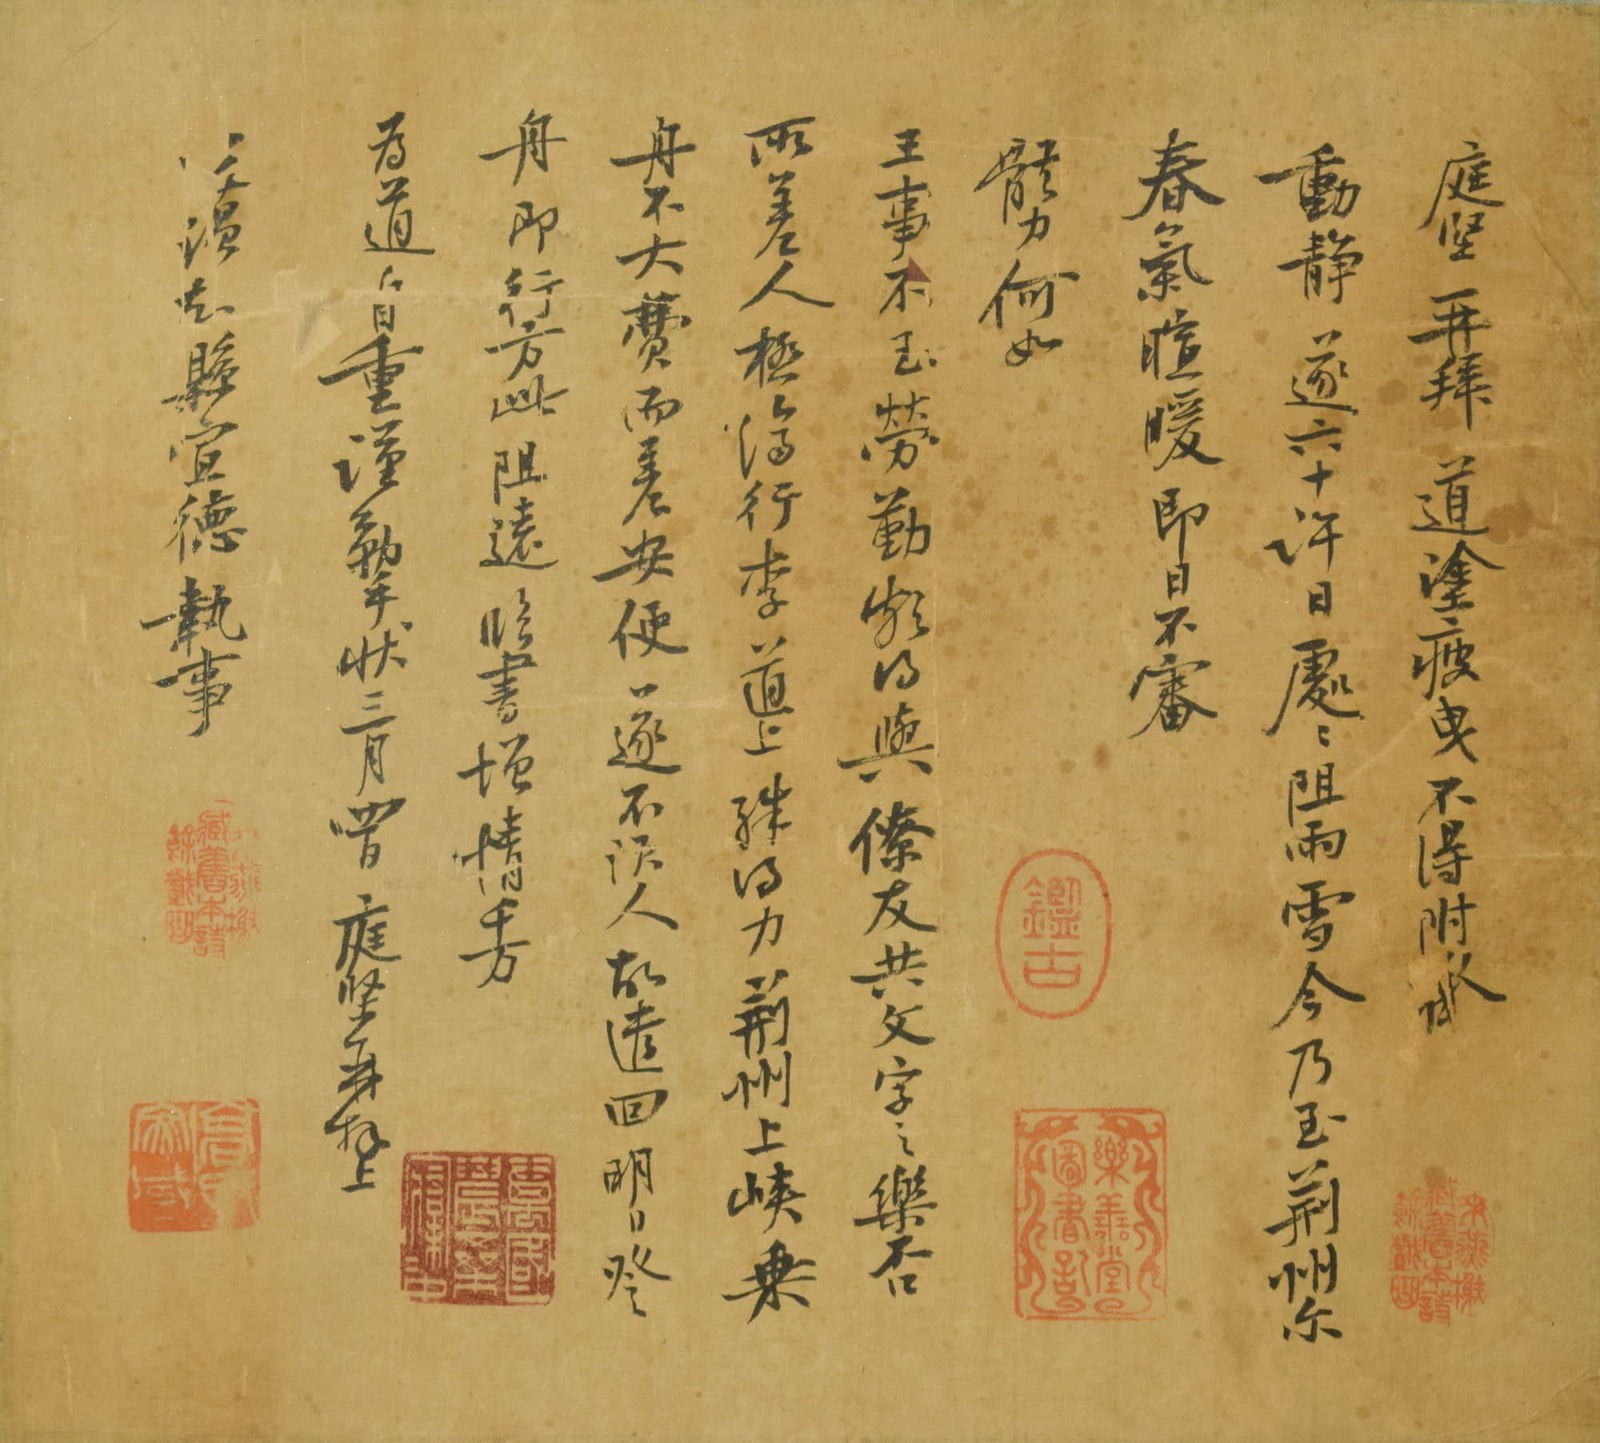 庭堅再拜道塗疲曳不得附承
動靜遂六十許日處〻阻雨雪今乃至荊州尔
春氣暄暖即日不審
體力何如
王事不至勞勤頗得與僚友共文字之樂否
所差人極濟行李道上殊得力荊州上峽乘
舟不大費而差安便遂不須人故遣回明日登
舟即行方此阻遠臨書增情千萬
為道自重謹勒手狀三月 庭堅再拜上
知縣宣德執事
鑑古
樂善堂圖書記